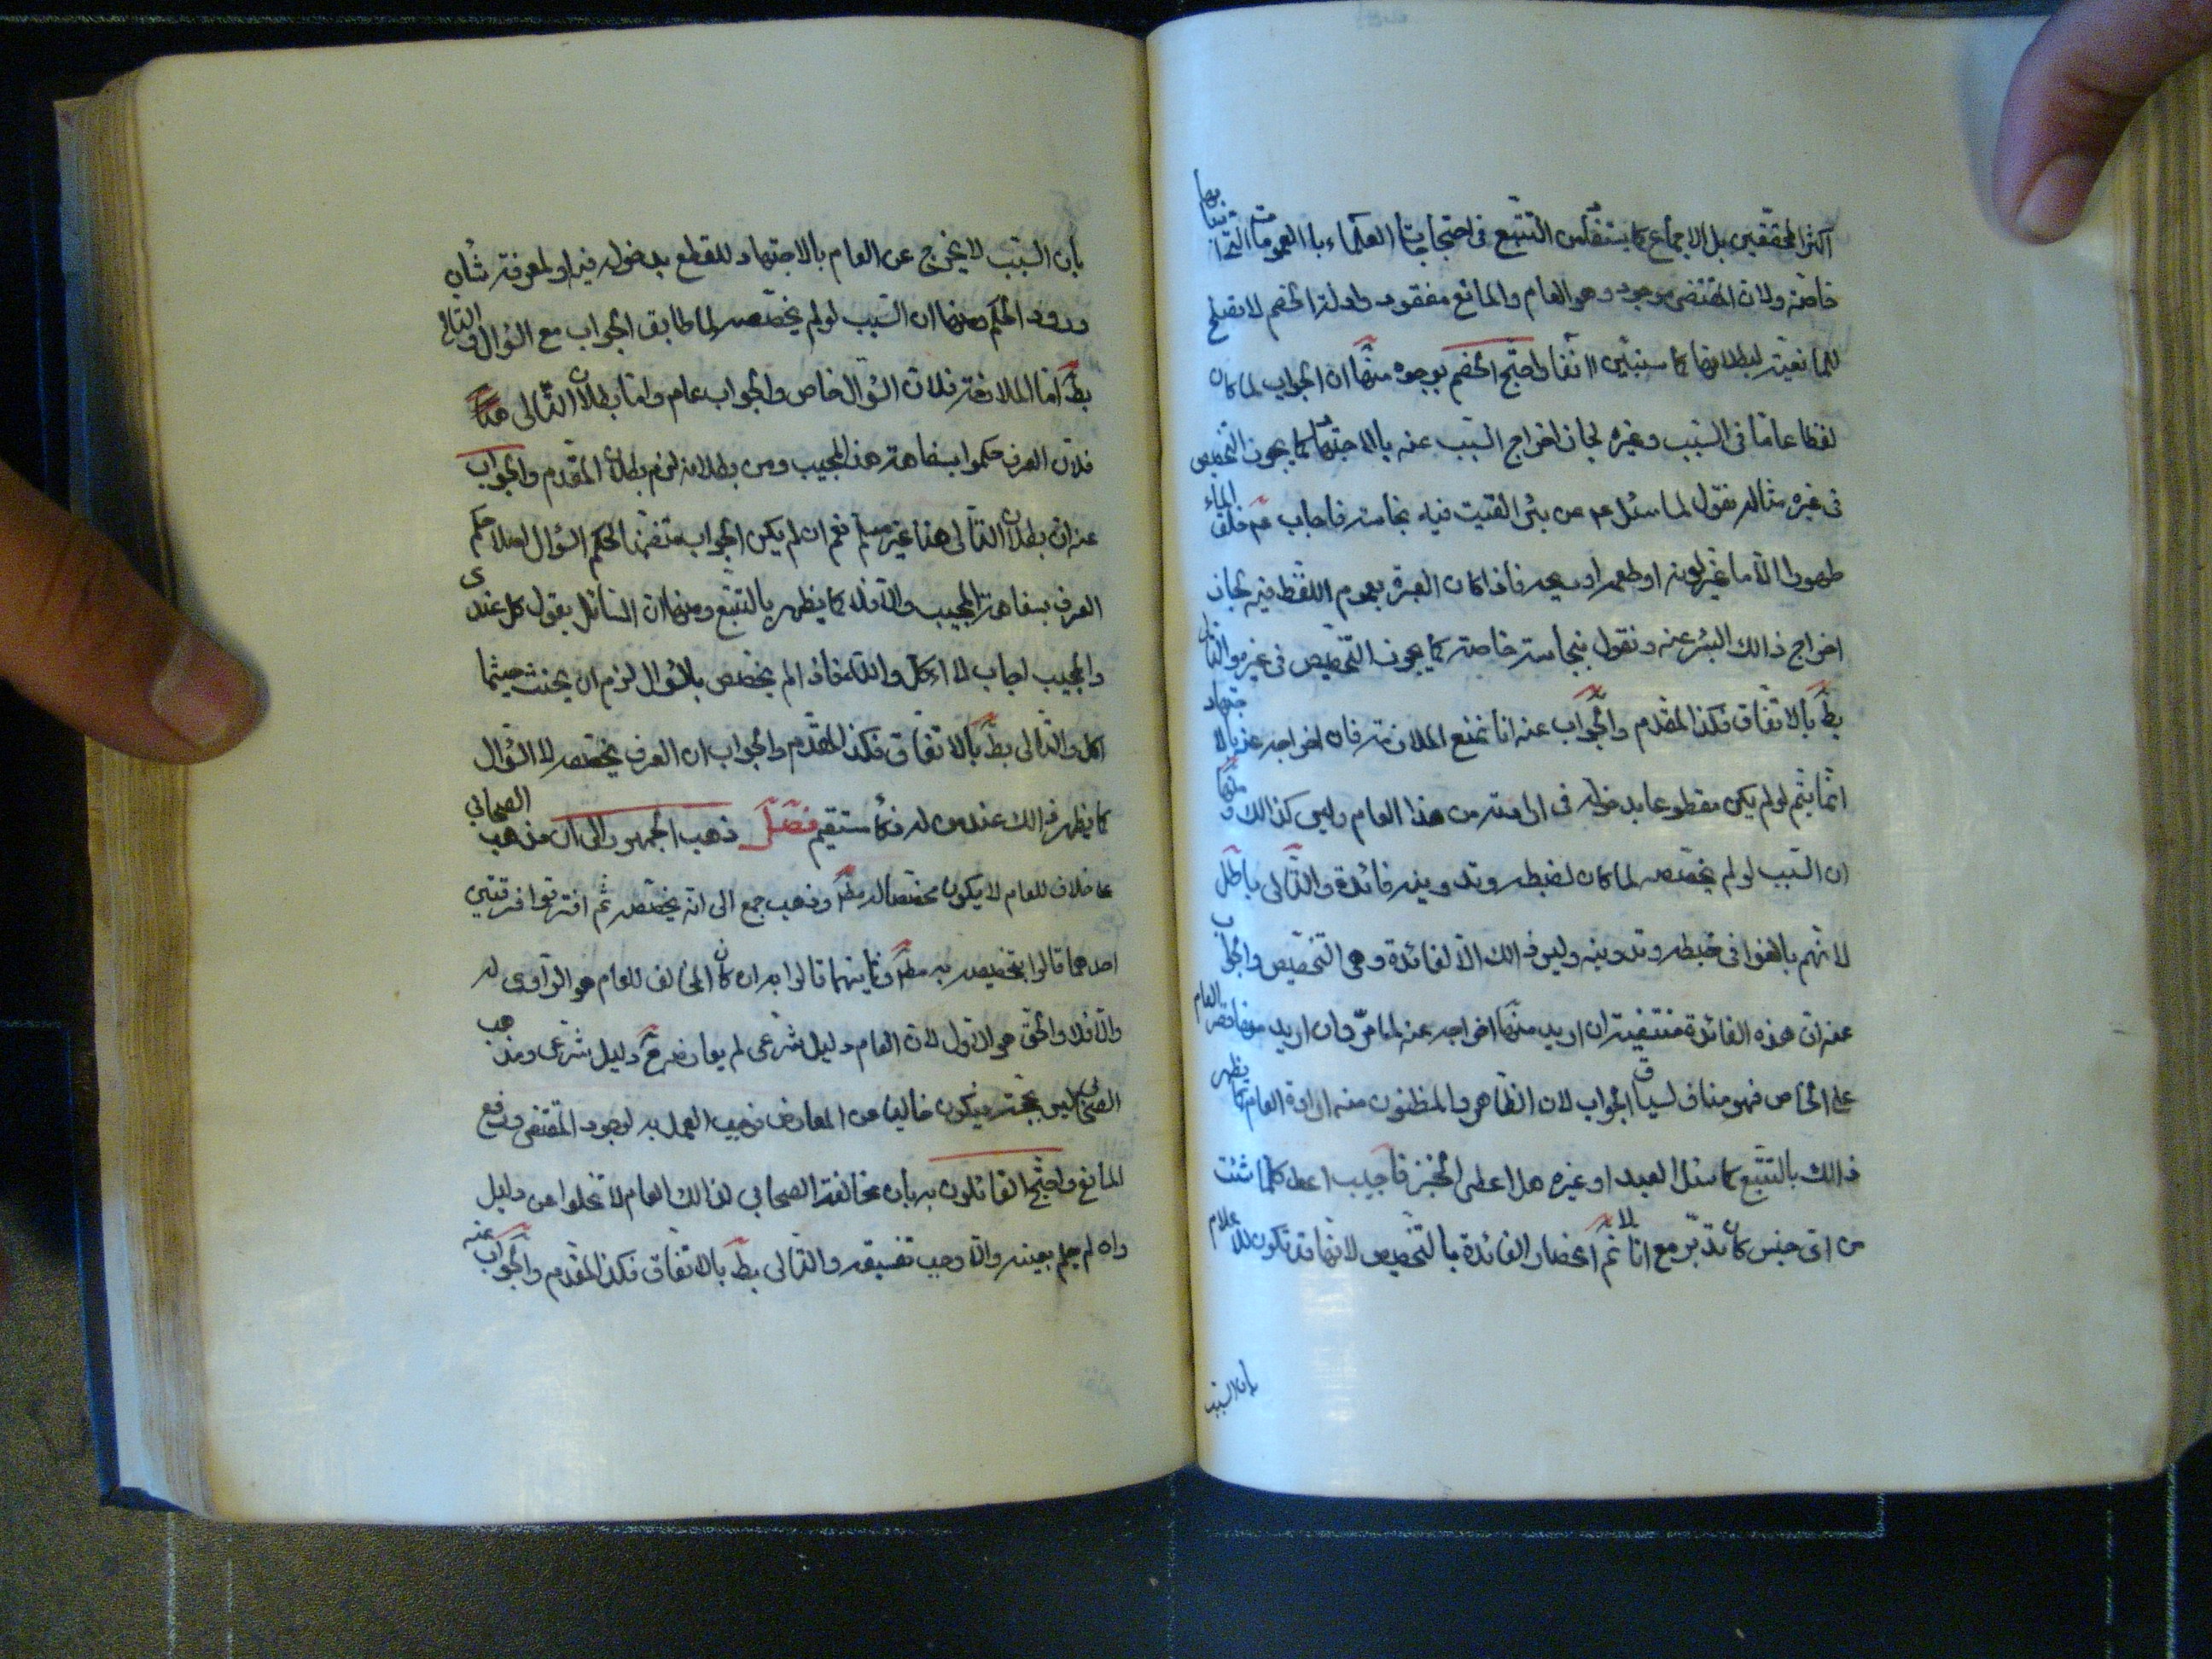 اكثر المحققين بل الاجماع كما يستفاد من التتبع في احتجاجات العلماء بالعمومات التي اسبابها
خاصة ولان المقتضى موجود وهو العام والمانع مفقود وادلة الخصم لا تصلح
للمانعية لبطلانها كما سنبين آنفا واحتج الخصم بوجوه منها ان الجواب لما كان
لفظا عاما في السبب وغيره لجاز اخراج السبب عنه بالاجتهاد كما يجوز التخصيص
في غيره مثاله نقول لما سئل عم عن بئر القيت فيه نجاسة فاجاب عم خلق الماء
طهورا الا ما غير لونه او طعمه او ريحه فاذا كان العبرة بعموم اللفظ فيه لجاز
اخراج ذالك البئر عنه ونقول بنجاسته خاصة كما يجوز التخصيص في غيره والتالى
بط بالاتفاق فكذا المقدم والجواب عنه انا نمنع الملازمة فان اخراجه عنه بالاجتهاد
انما يتم لو لم يكن مقطوعا بدخوله في ارادته من هذا العام وليس كذالك ومنها
ان السبب لو لم يخصصه لما كان لضبطه وتدوينه فائدة والتالى باطل
لانهم بالغوا في ضبطه وتدوينه وليس ذالك الا لفائدة وهي التخصيص والجواب
عنه ان هذه الفائدة منتفية ان اريد منها اخراجه عنه لما مر وان اريد منها قصر العام
على الخاص فهو مناف لسياق الجواب لان الظاهر والمظنون منه ارادة العام كما يظهر
ذالك بالتتبع كما سئل العبد او غيره هل اعطى الخبز فاجيب اعط كلما شئت
من اى جنس كان تدبر مع انا لا نم انحصار الفائدة بالتخصيص لانها قد تكون للاعلام
بان السبب
بان السبب لا يخرج عن العام بالاجتهاد للقطع بدخوله فيه او لمعرفة شان
ورود الحكم ومنها ان السبب لو لم يخصصه لما طابق الجواب مع السؤال والتالى
بط اما الملازمة فلان السؤال خاص والجواب عام واما بطلان التالى هنا
فلان العرف حكموا بسفاهة هذا المجيب ومن بطلانه لزم بطلان المقدم والجواب
عنه ان بطلان التالى هنا غير مسلم نعم ان لم يكن الجواب متضمنا لحكم السؤال اصلا حكم
العرف بسفاهة المجيب والا فلا كما يظهر بالتتبع ومنها ان السائل يقول كل عندى
والمجيب اجاب لا اكل والله فاذا لم يخصص بالسؤال لزم ان يحنث حيثما
اكل والتالى بط بالاتفاق فكذا المقدم والجواب ان العرف يخصصه لا السؤال
كما يظهر ذالك عند من له ذكاء مستقيم فصل ذهب الجمهور الى ان مذهب الصحابي
على خلاف للعام لا يكون مخصصا له مط وذهب جمع الى انه يخصصه ثم افترقوا فرقتين
احدهما قالوا بتخصيصه به مط وثانيهما قالوا به ان كان المخالف للعام هو الراوى له
والا فلا والحق هو الاول لان العام دليل شرعى لم يعارضه ح دليل شرعى ومذهب
الصحابى ليس بحجة فيكون خاليا عن المعارض فيجب العمل به لوجود المقتضى ورفع
المانع واحتج القائلون به بان مخالفة الصحابي لذالك العام لا تخلوا عن دليل
وان لم يعلم بعينه والا وجب تفسيقه والتالى بط بالاتفاق فكذا المقدم والجواب عنه